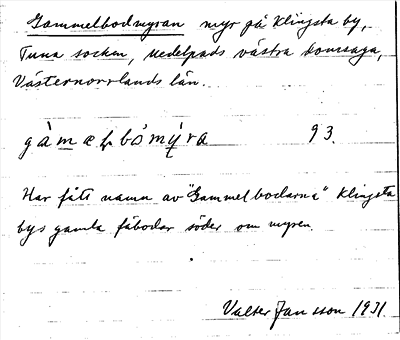 Gammelbodmyran myr på Klingsta by,
Tuna socken, Medelpads västra domsaga,
Västernorrlands län.
93.
Har fått namn av "Gammelbodarna" Klingsta
bys gamla fäbodar söder om myren.
Valter Jansson 1931.